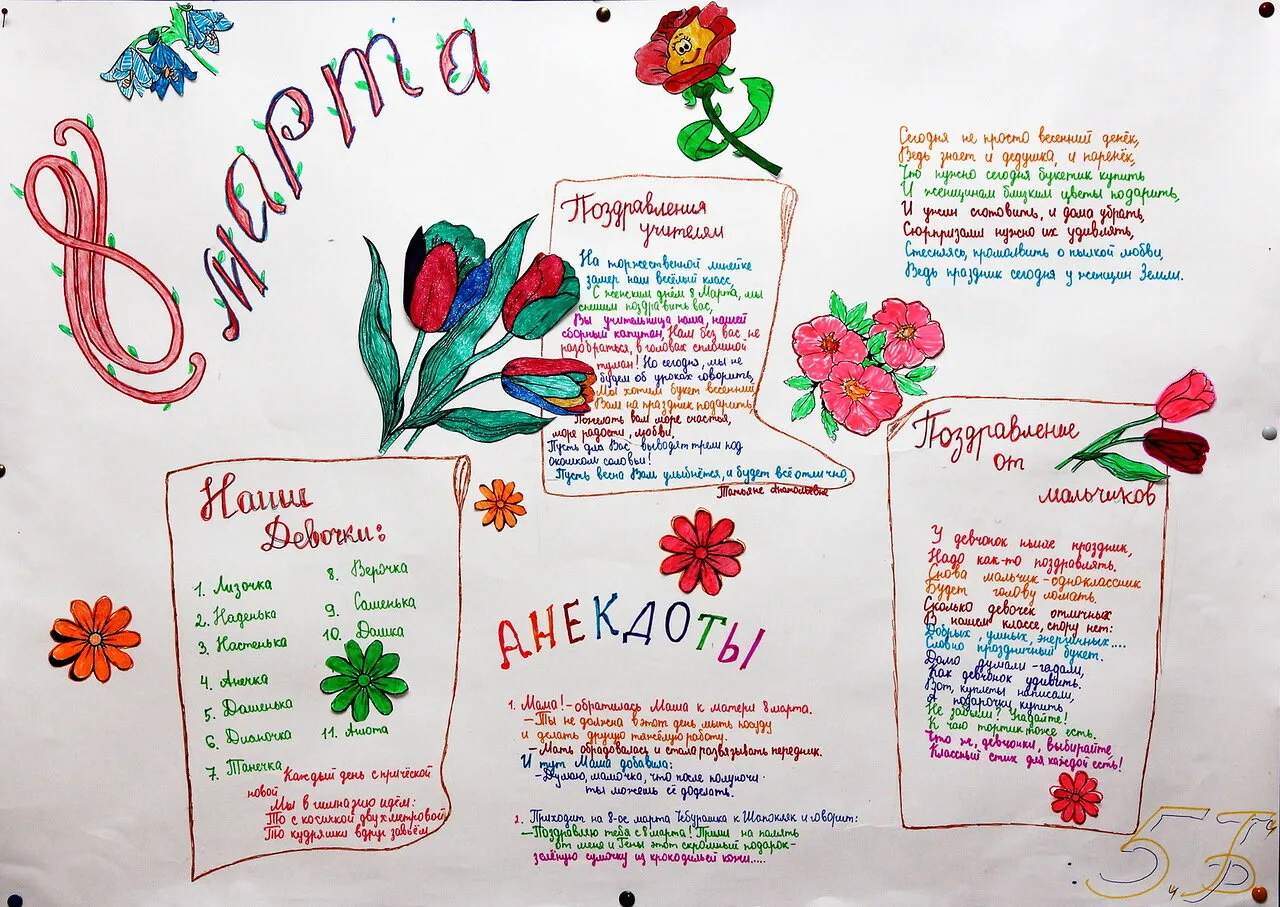 8 марта
Сегодня не просто весенний денёк,
Ведь знает и дедушка, и паренёк,
Что нужно сегодня букетик купить
И женщинам близким цветы подарить,
И ужин сготовить, и дома убрать,
Сюрпризами нужно их удивлять,
Стесняясь, промолвить о пылкой любви,
Ведь праздник сегодня у женщин Земли.
Поздравления
учителям
На торжественной линейке
замер наш весёлый класс,
С женским днём 8 Марта, мы
спешим поздравить вас,
Вы учительница наша, нашей
сборный капитан, Нам без вас не
разобраться, в головах сплошной
туман! Но сегодня, мы не
будем об уроках говорить,
Мы хотим букет весенний
Вам на праздник подарить,
Пожелать вам море счастья,
море радости, любви,
Пусть для Вас выводят трели под
окошком соловьи!
Пусть весна Вам улыбнётся, и будет всё отлично,
Татьяне Анатольевне
Наши
Девочки:
1. Лизочка
2. Наденька
3. Настенька
4. Анечка
5. Дашенька
6. Дианочка
7. Танечка
8. Верочка
9. Сашенька
10. Дашка
11. Анюта
Каждый день с причёской
новой
Мы в гимназию идём:
То с косичкой двухметровой
То кудряшки вдруг завьём
АНЕКДОТЫ
1. Мама! - обратилась Маша к матери 8 марта.
- Ты не должна в этот день мыть посуду
и делать другую тяжёлую работу.
- Мать обрадовалась и стала развязывать передник.
И тут Маша добавила:
- Думаю, мамочка, что после полуночи
ты можешь её доделать.
2. Приходит на 8-ое марта Чебурашка к Шапокляк и говорит:
- Поздравляю тебя с 8 марта! Прими на память
от меня и Гены этот скромный подарок-
зелёную сумочку из крокодильей кожи.....
Поздравление
от
мальчиков
У девчонок ныне праздник,
Надо как-то поздравлять.
Снова мальчик-одноклассник
Будет голову ломать.
Сколько девочек отличных
В нашем классе, спору нет:
Добрых, умных, энергичных....
Словно праздничный букет.
Долго думали-гадали,
Как девчонок удивить.
Вот, куплеты написали,
А подарочки купить
Не забыли? Угадайте!
К чаю тортик тоже есть.
Что ж, девчонки, выбирайте,
Классный стих для каждой есть!
5 "Б"